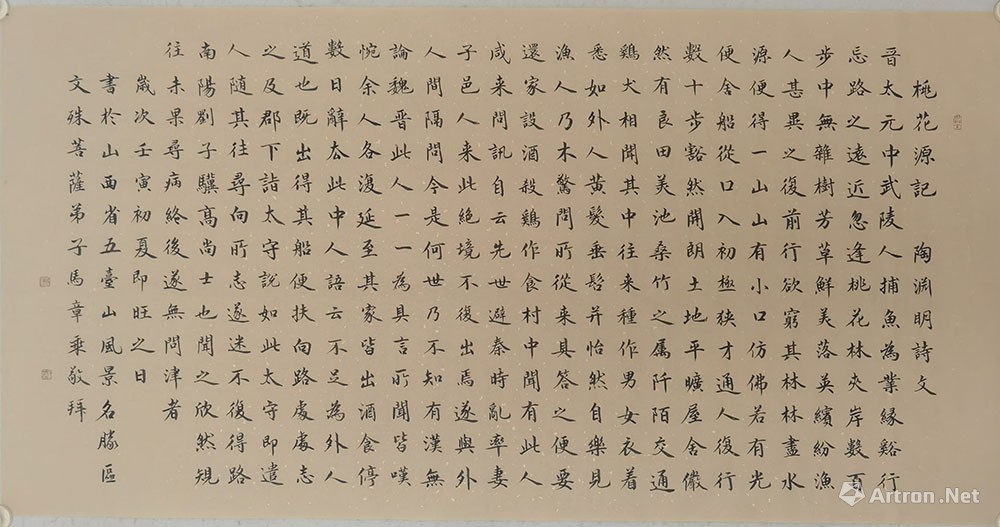 桃花源記 陶淵明詩文
晉太元中武陵人捕魚為業緣谿行
忘路之遠近忽逢桃花林夾岸數百
步中無雜樹芳草鮮美落英繽紛漁
人甚異之復前行欲窮其林林盡水
源便得一山山有小口仿佛若有光
便舍船從口入初極狹才通人復行
數十步豁然開朗土地平曠屋舍儼
然有良田美池桑竹之属阡陌交通
鷄犬相聞其中往来種作男女衣着
悉如外人黄髮垂髫并怡然自樂見
漁人乃大驚問所從来具答之便要
還家設酒殺鷄作食村中聞有此人
咸来問訊自云先世避秦時亂率妻
子邑人来此絕境不復出焉遂與外
人間隔問今是何世乃不知有漢無
論魏晉此人一一為具言所聞皆嘆
惋余人各復延至其家皆出酒食停
數日辭去此中人語云不足為外人
道也既出得其船便扶向路處處志
之及郡下詣太守說如此太守即遣
人随其往尋向所志遂迷不復得路
南陽劉子驥高尚士也聞之欣然規
往未果尋病終後遂無問津者
歲次壬寅初夏即旺之日
書於山西省五臺山風景名勝區
文殊菩薩弟子馬章乘敬拜
Artron.Net